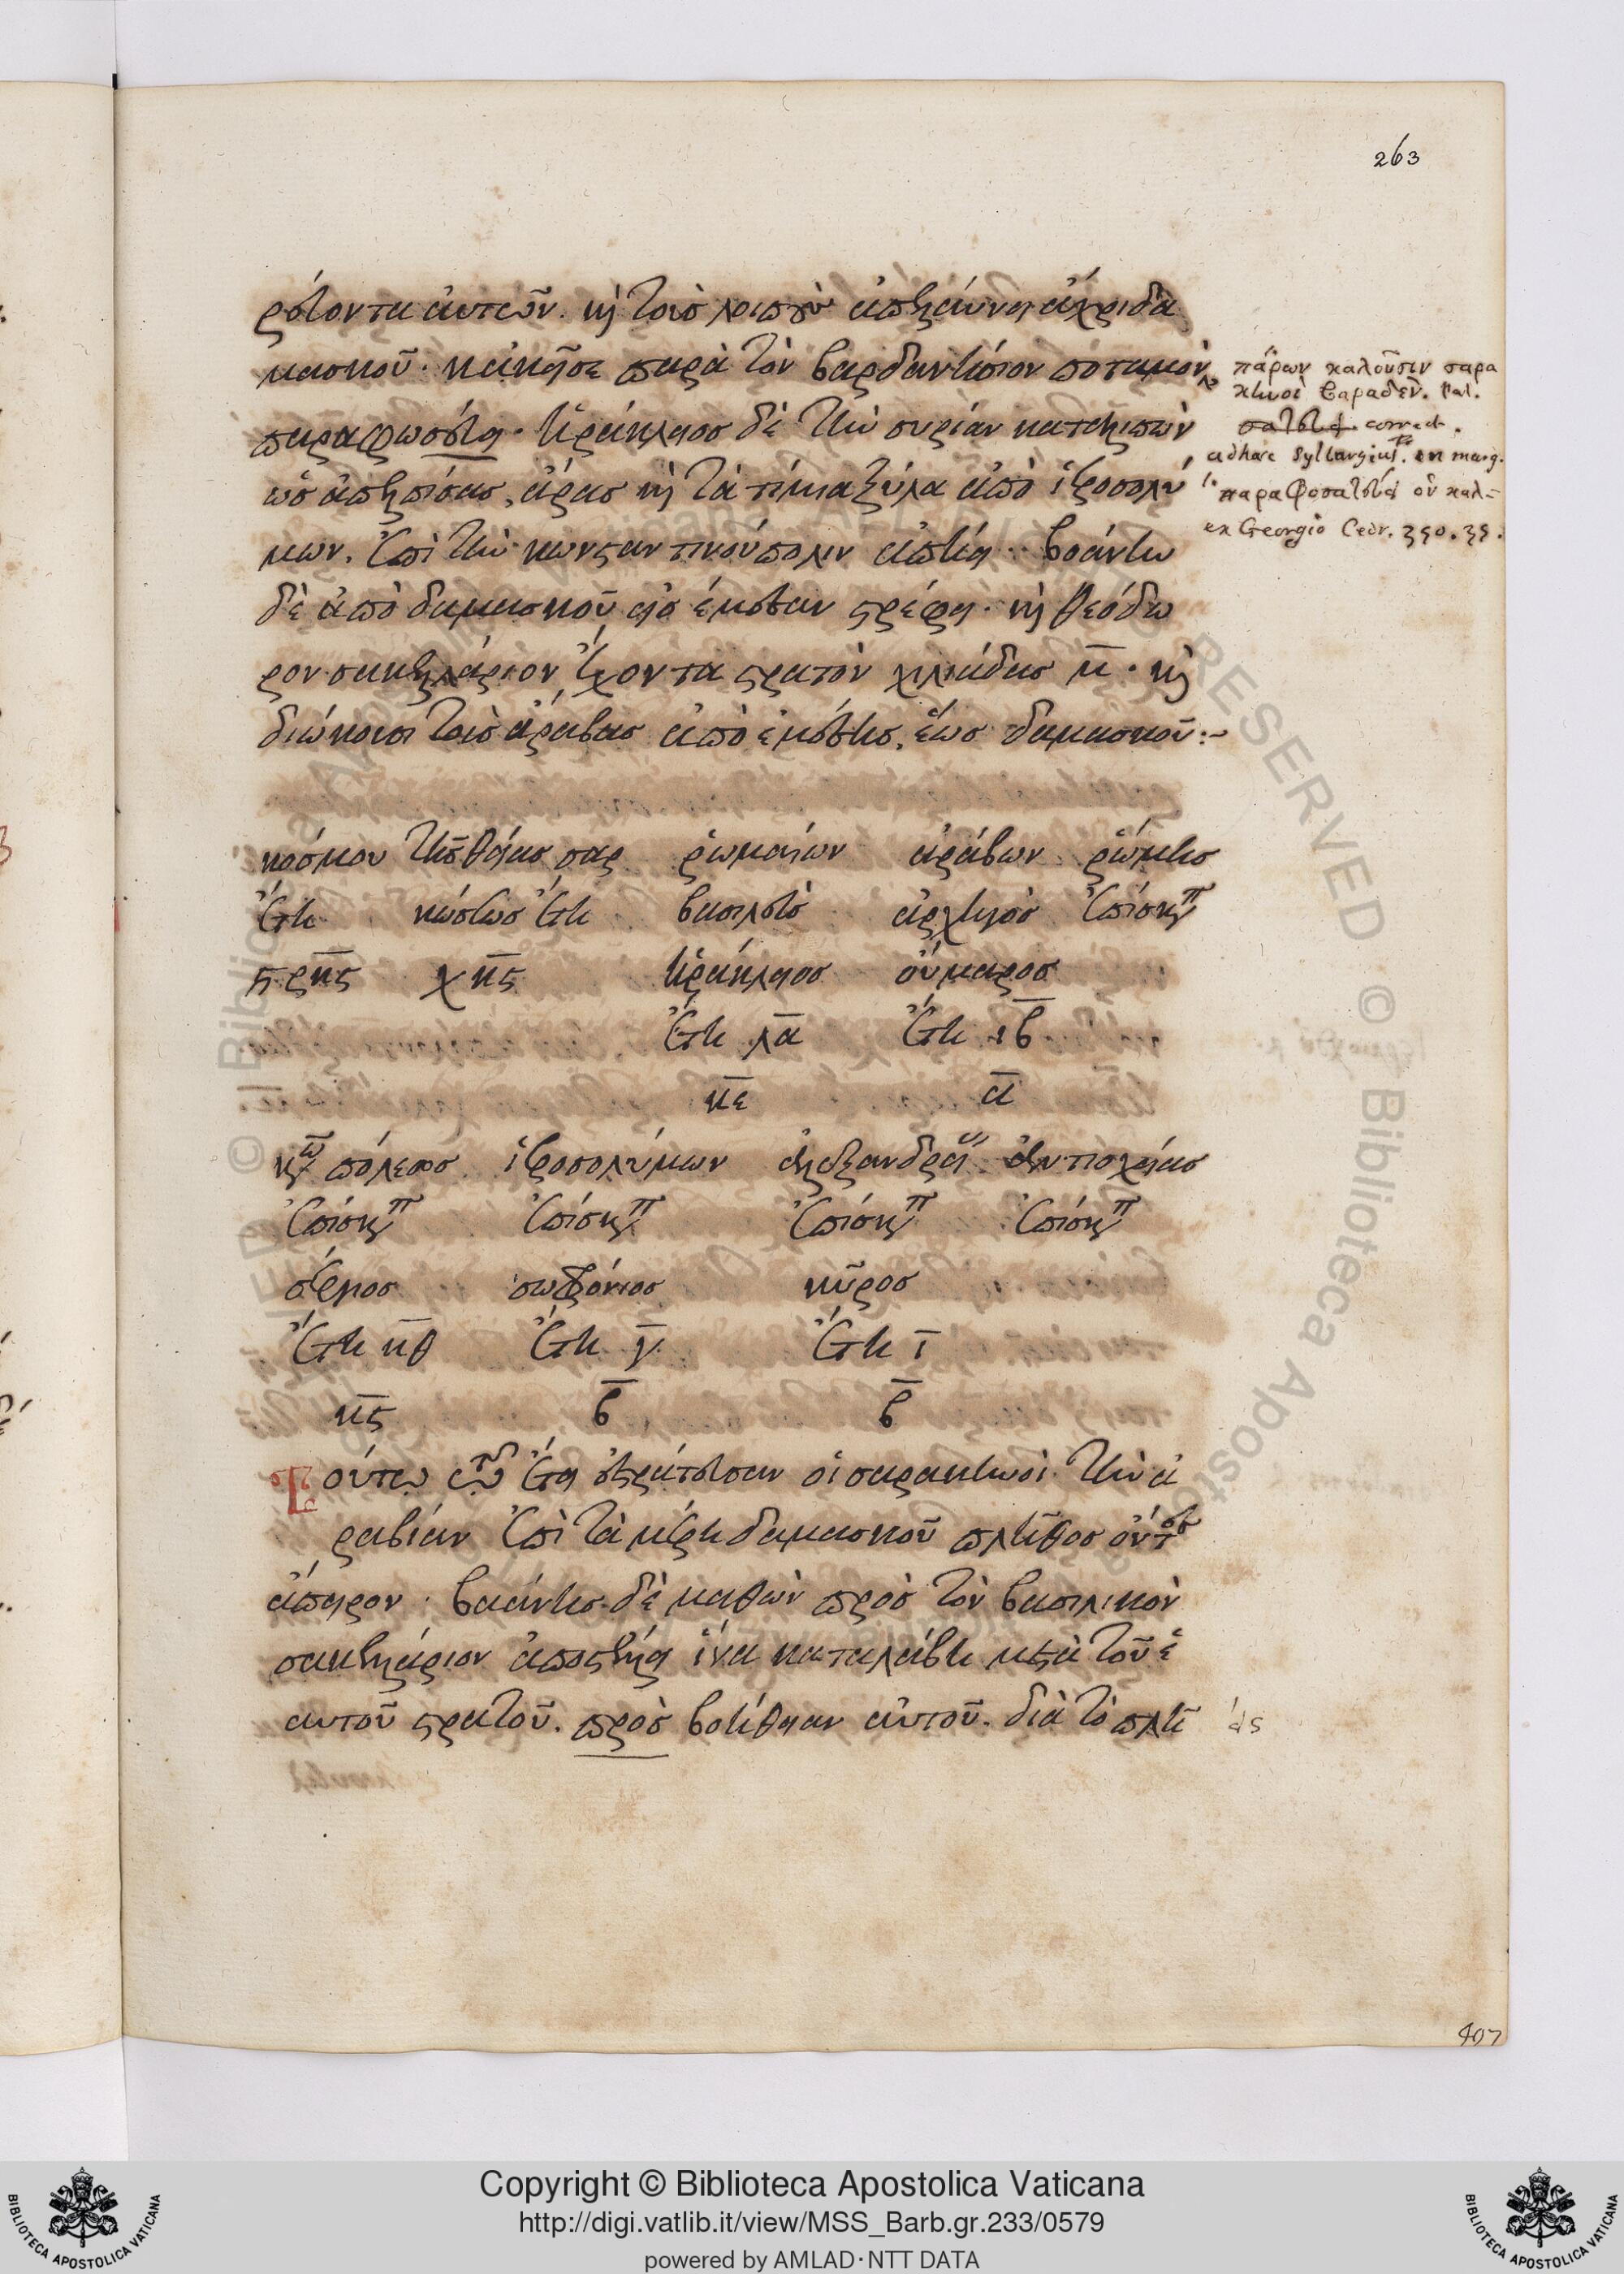 263
ρεύοντα αὐτῶν. καὶ τοὺς λοιποὺς ἀπελαύνει ἄχρι δα
μασκοῦ. κἀκεῖσε παρὰ τὸν βαρδανήσιον ποταμὸν
παραφωσεύει. ἡράκλειος δὲ τὴν συρίαν κατελιπὼν
ὡς ἀπελπίσας, ἄρας καὶ τὰ τίμια ξύλα ἀπὸ ἱεροσολύ
μων. ἐπὶ τὴν κωνσταντινούπολιν ἀπίει. βοάνην
δὲ ἀπὸ δαμασκοῦ εἰς ἔμεσαν στρέφει. καὶ θεόδω
ρον σακελλάριον ἔχοντα στρατὸν χιλιάδας μ̅. καὶ
διώκουσι τοὺς ἄραβας ἀπὸ ἐμέσης, ἕως δαμασκοῦ:~
πάρων καλοῦσιν σαρα
κηνοὶ βαραδὲν. Pal.
correct.
in marg.
παραφοσατεύει
ex Georgio Cedr.
κόσμου τῆς θείας σαρ ῥωμαίων ἀράβων ῥώμης
ἔτη κώσεως ἔτη βασιλεὺς ἀρχηγὸς ἐπίσκοπ
ϛρκϛ χκϛ ἡράκλειος οὔμαρος
ἔτη λα ἔτη ιβ
κε α
κω πόλεως ἱεροσολύμων ἀλεξανδρεί ἀντιοχείας
ἐπίσκοπ ἐπίσκοπ ἐπίσκοπ ἐπίσκοπ
σέργιος σωφρόνιος κῦρος
ἔτη κθ ἔτη γ ἔτη ι
κϛ β β
Τούτῳ τῷ ἔτει ἐστράτευσαν οἱ σαρακηνοὶ τὴν ἀ
ραβίαν ἐπὶ τὰ μέρη δαμασκοῦ πλῆθος ὄντες
ἄπειρον. βαάνης δὲ μαθὼν πρὸς τὸν βασιλικὸν
σακελλάριον ἀποστέλλει ἵνα καταλάβη μετὰ τοῦ ἑ
αυτοῦ στρατοῦ. πρὸς βοήθειαν αὐτοῦ. διὰ τὸ πλῆ
εἰς
407
Copyright © Biblioteca Apostolica Vaticana
http://digi.vatlib.it/view/MSS_Barb.gr.233/0579
powered by AMLAD·NTT DATA
BIBLIOTECA APOSTOLICA VATICANA
BIBLIOTECA APOSTOLICA VATICANA